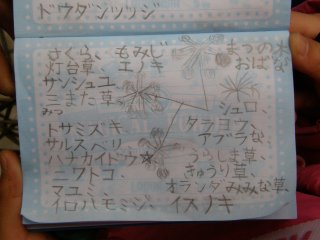 ドウダンツツジ
さくら、もみじ
まつの木
灯台草、エノキ
おばな
サンシュユ、
三また草、
みつ
シュロ、
トサミズキ
タラヨウ、
サルスベリ
アブラな、
ハナカイドウ☆
うらしま草、
ニワトコ、
きゅうり草、
マユミ、
オランダみみな草、
イロハモミジ、イスノキ